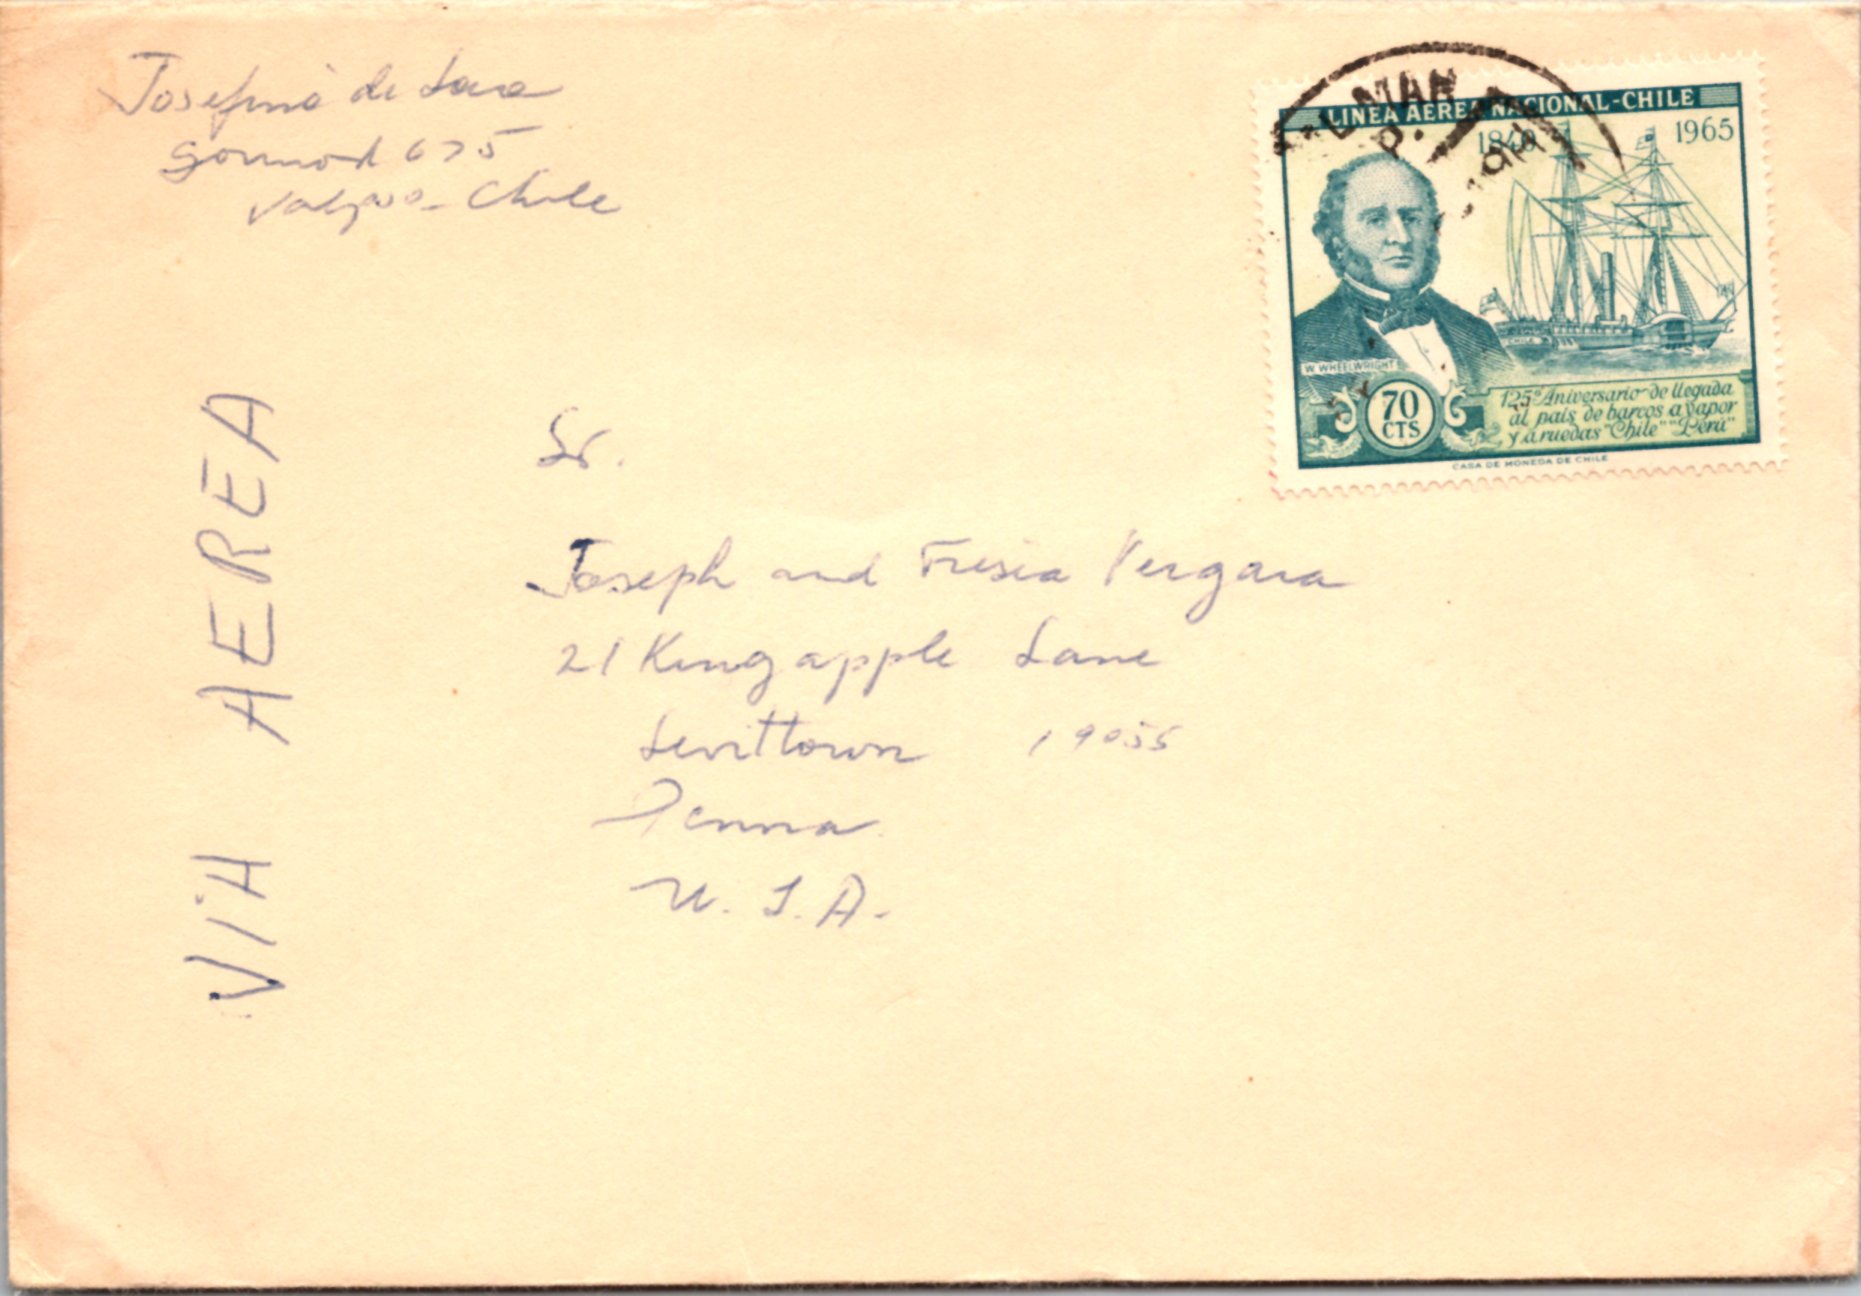 Josefina de Lara
675
Valpso - Chile
LINEA AEREA NACIONAL-CHILE
1840 1965
W. WHEELWRIGHT
70
CTS
125º Aniversario de llegada
al país de barcos a vapor
y a ruedas "Chile" "Perú"
CASA DE MONEDA DE CHILE
VIA AEREA
Sr.
Joseph and Fresia Vergara
21 Kingapple Lane
Levittown 19055
Penna
U.S.A.